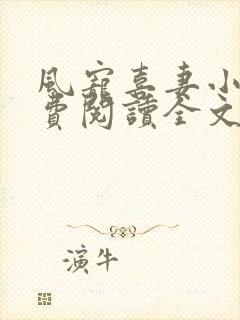 風寵喜妻小
費閱讀全文
演牛